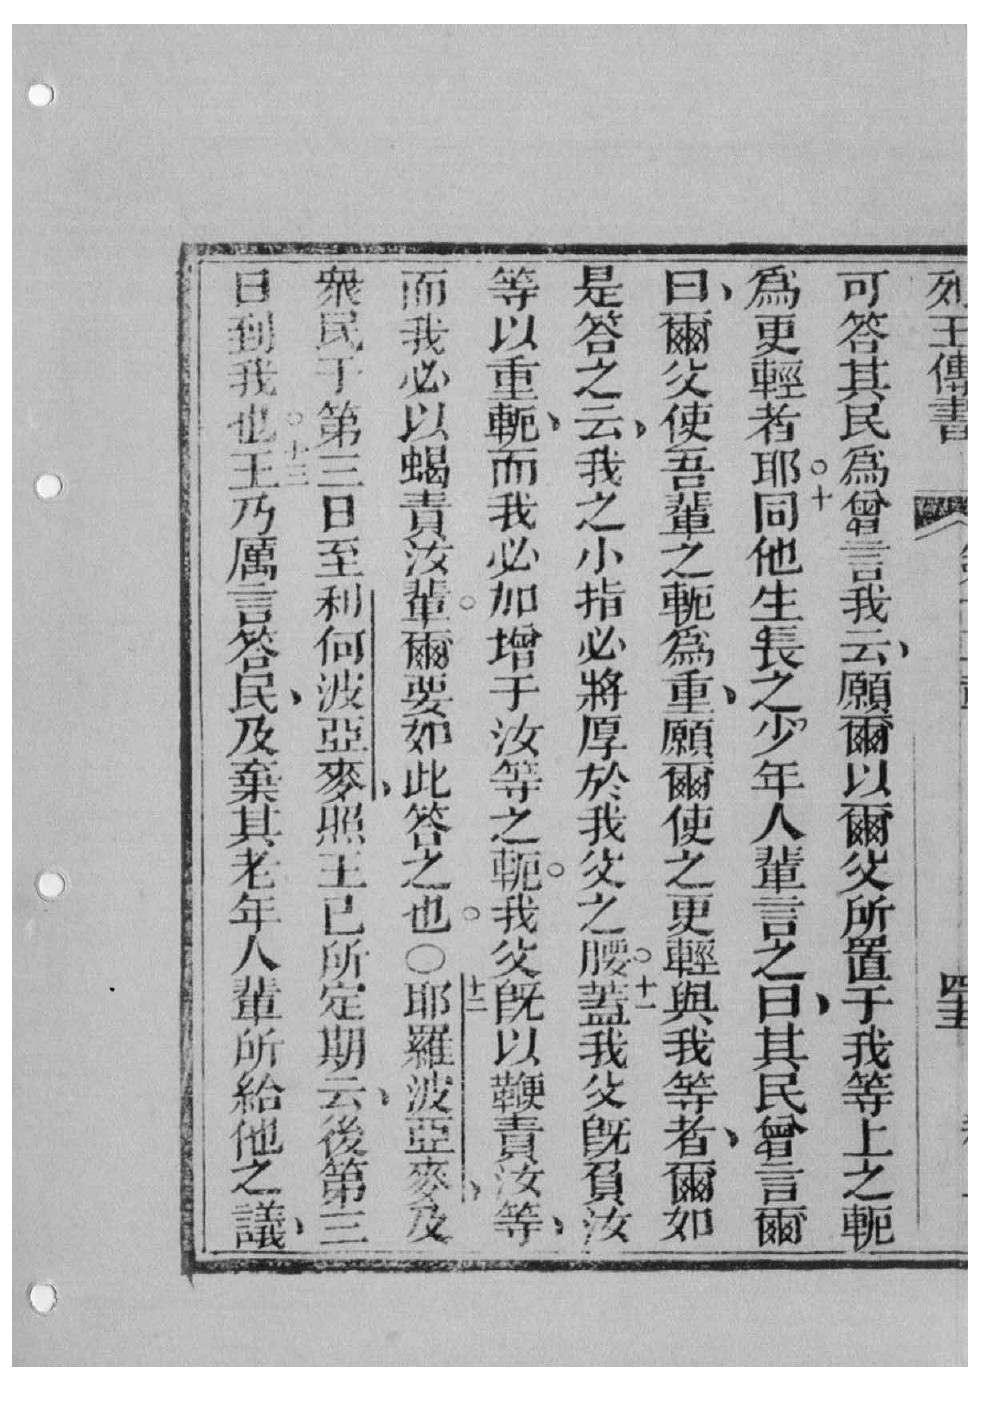 列王傳書
可答其民爲曾言我云、願爾以爾父所置于我等上之軛
爲更輕者耶○十同他生長之少年人輩言之曰、其民曾言爾
曰、爾父使吾輩之軛爲重、願爾使之更輕與我等者、爾如
是答之云、我之小指必將厚於我父之腰○十一蓋我父旣負汝
等以重軛、而我必加增于汝等之軛○我父旣以鞭責汝等、
而我必以蝎責汝輩○爾要如此答之也○〇十二耶羅波亞麥、及
衆民于第三日至利何波亞麥、照王已所定期云、後第三
日到我也○十三王乃厲言答民、及棄其老年人輩所給他之議、